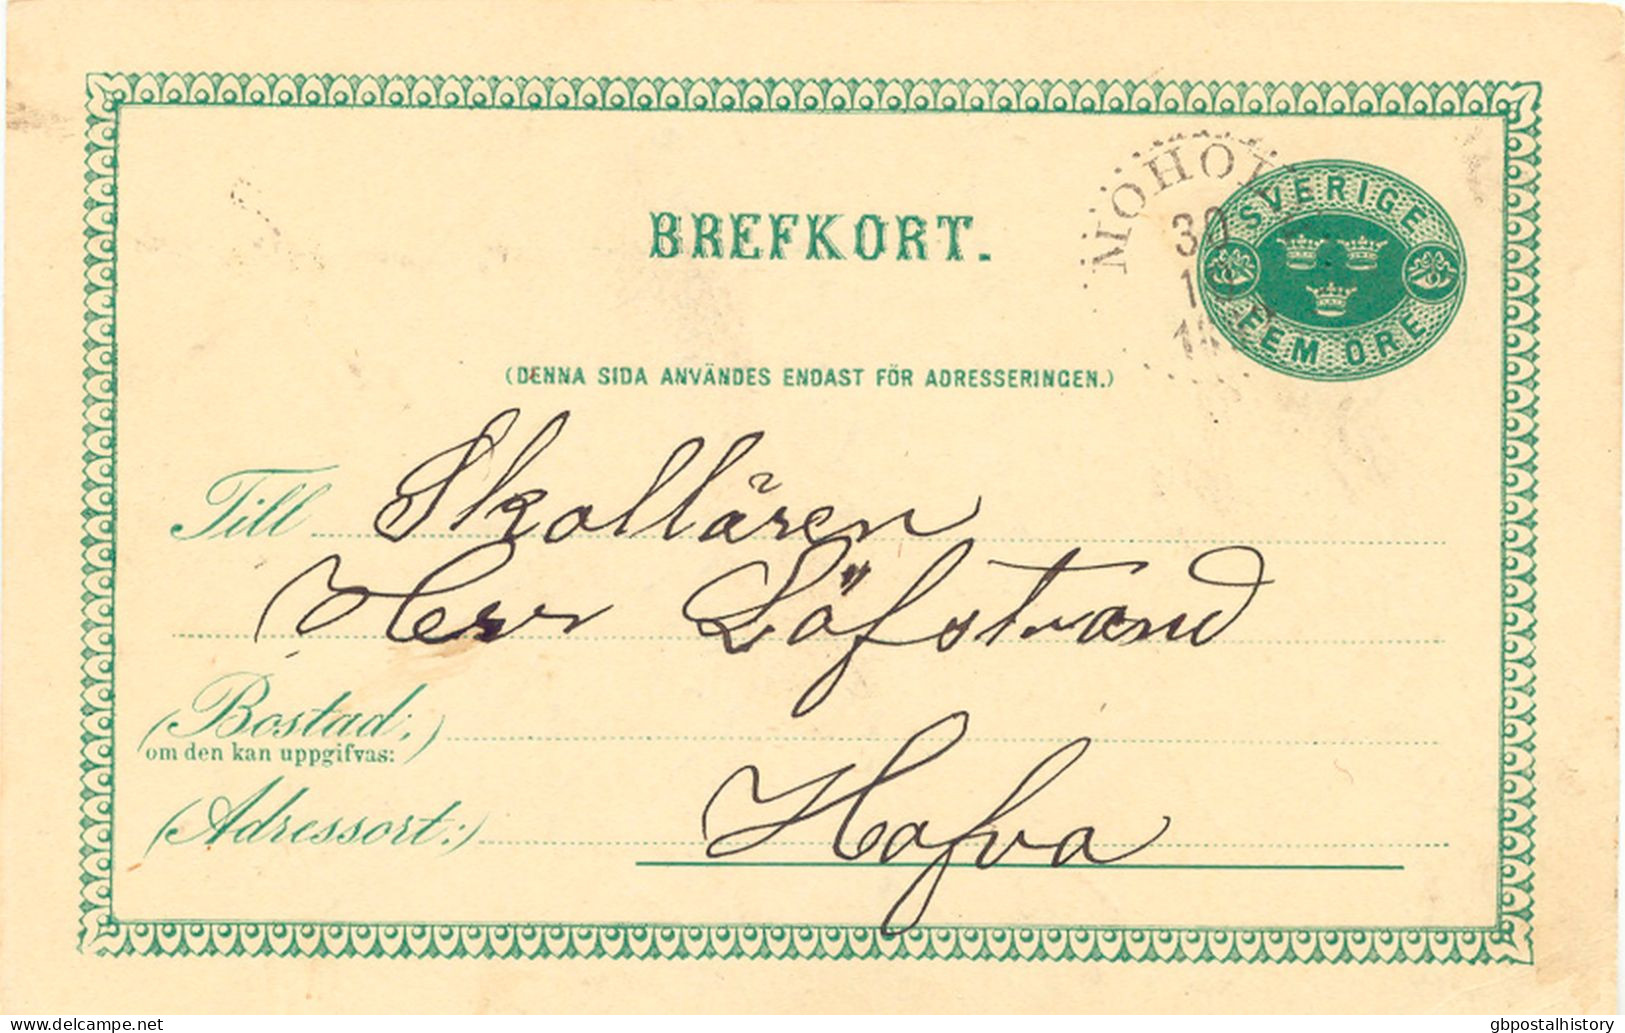 BREFKORT.
SVERIGE
FEM ÖRE
MOHOL
30
(DENNA SIDA ANVÄNDES ENDAST FÖR ADRESSERINGEN.)
Till Skolläraren
Herr Löfstrand
(Bostad:)
om den kan uppgifvas:
(Adressort:) Hafva
delcampe.net
gbpostalhistory